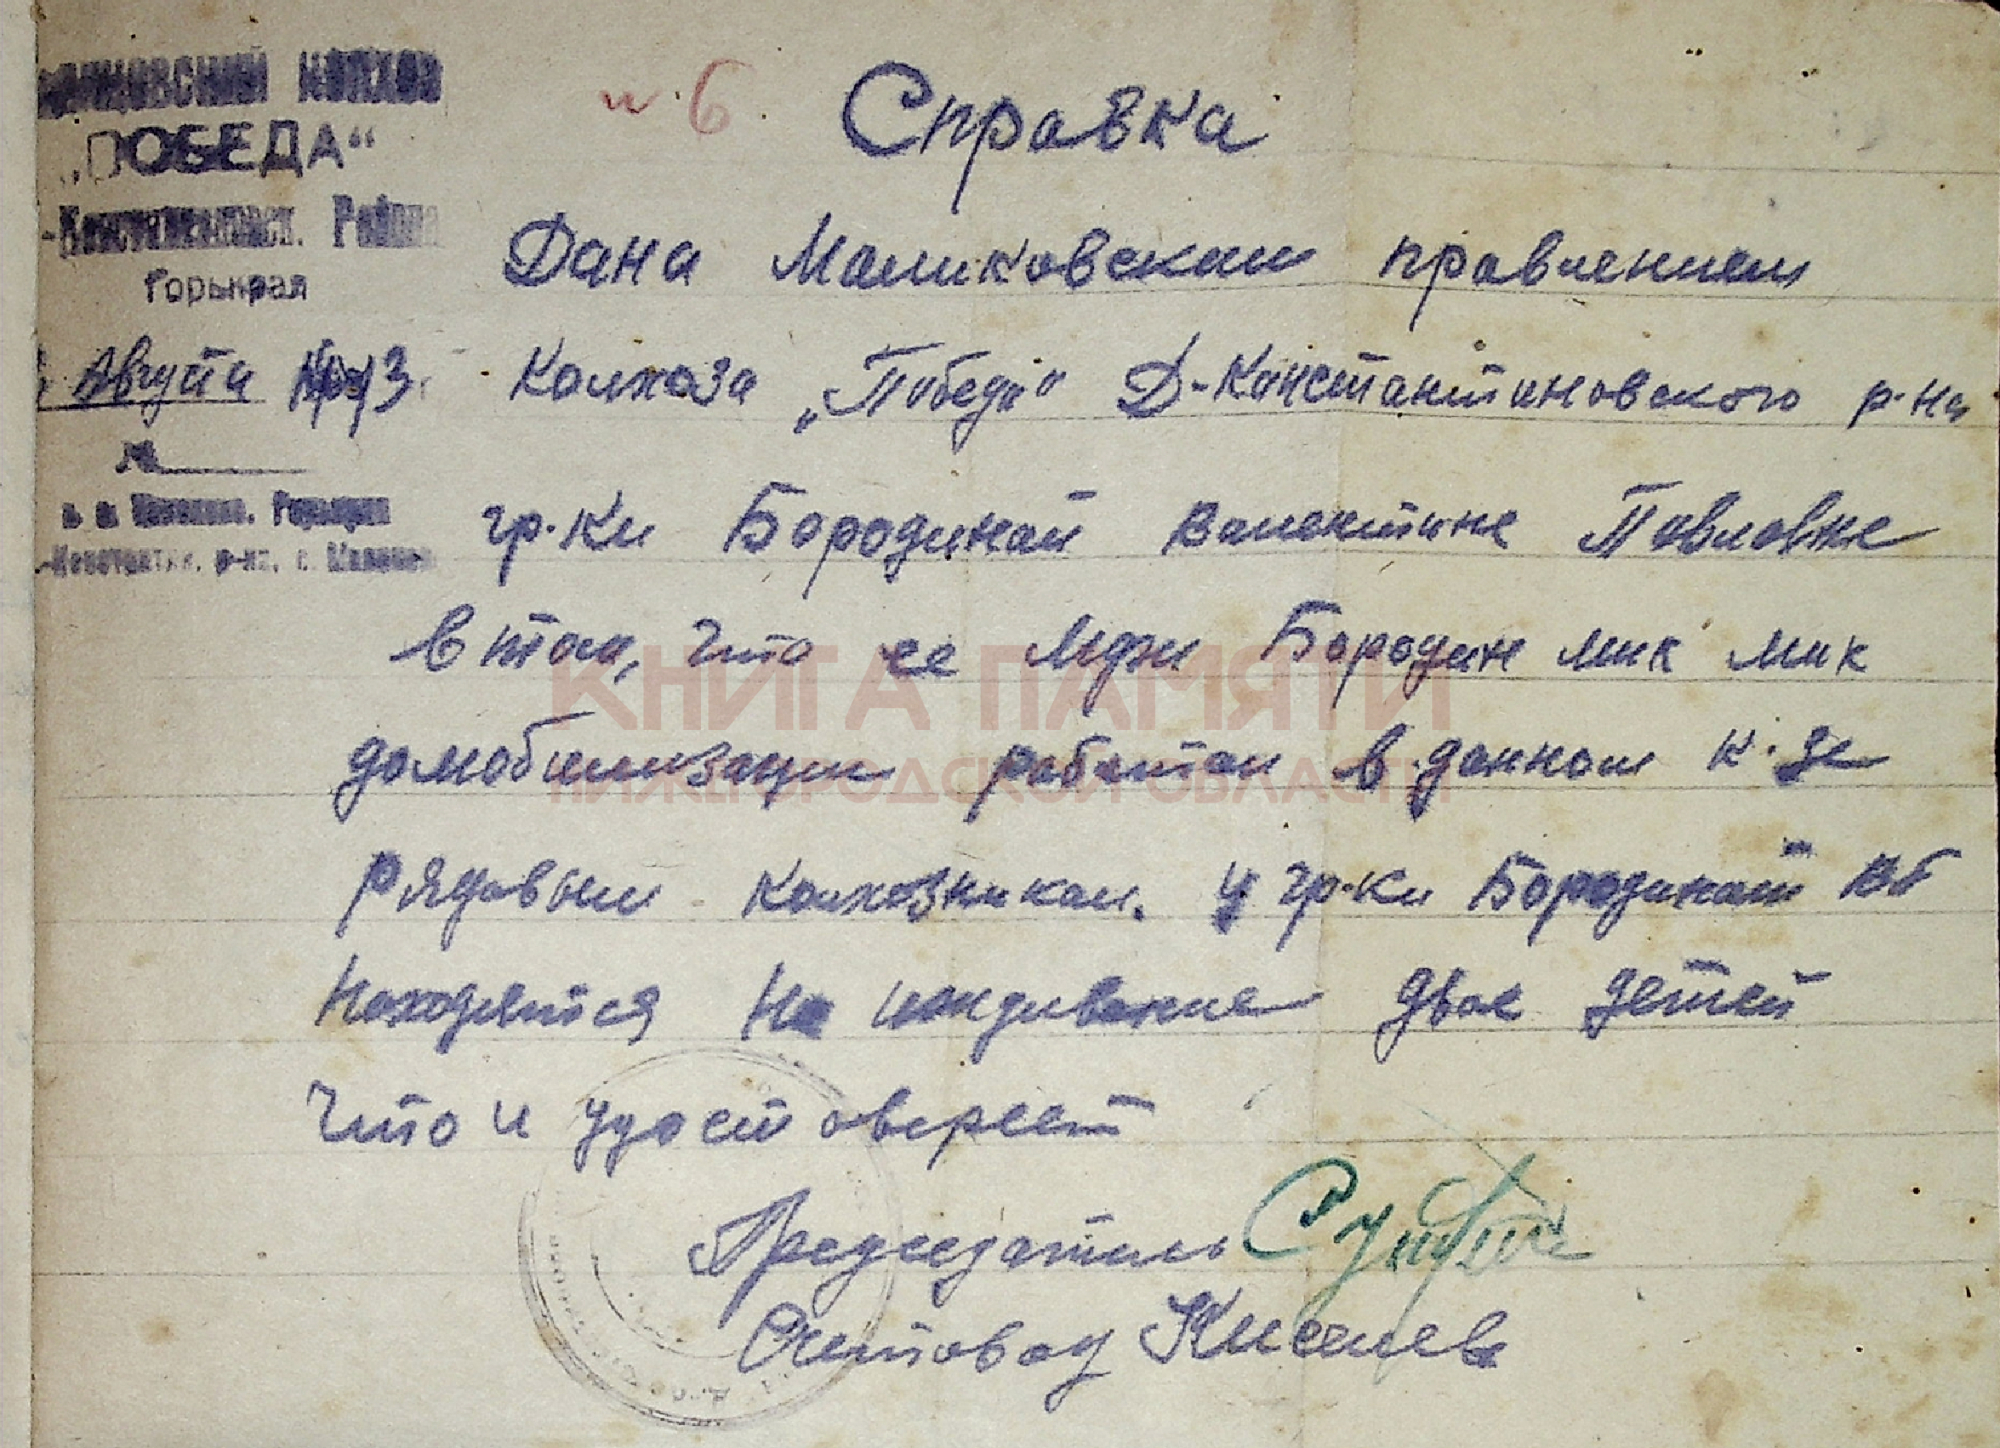 КОЛХОЗ
„ПОБЕДА“
Района
Горькрая
Августа 43
№
и. 6
Справка
Дана Маликовским правлением
Колхоза „Победа“ Д-Константиновского р-на
гр-ки Бородиной Валентине Павловне
в том, что ее муж Бородин Мик Мик
домобилизации работал в данном к-зе
рядовым колхозником. У гр-ки Бородиной ВП
находятся на иждивение двое детей
что и удостоверяет
Председатель
Счетовод Киселев
КНИГА ПАМЯТИ
НИЖЕГОРОДСКОЙ ОБЛАСТИ